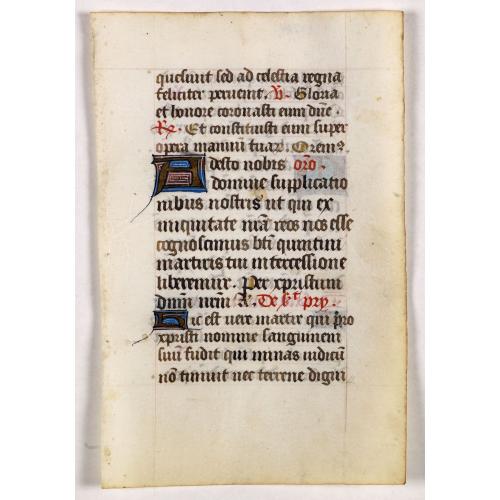 quesiuit sed ad celestia regna
feliciter peruenit. V. Gloria
et honore coronasti eum dñe.
R. Et constituisti eum super
opera manuũ tuar. Orem9
Adesto nobis oro.
domine supplicatio
nibus nostris ut qui ex
iniquitate nrã reos nos esse
cognoscimus bti quintini
martiris tui intercessione
liberemur. Per xpristum
dnm nrm &. De
Hic est uere martir qui pro
xpristi nomine sanguinem
suũ fudit qui minas iudicũ
nõ timuit nec terrene digni